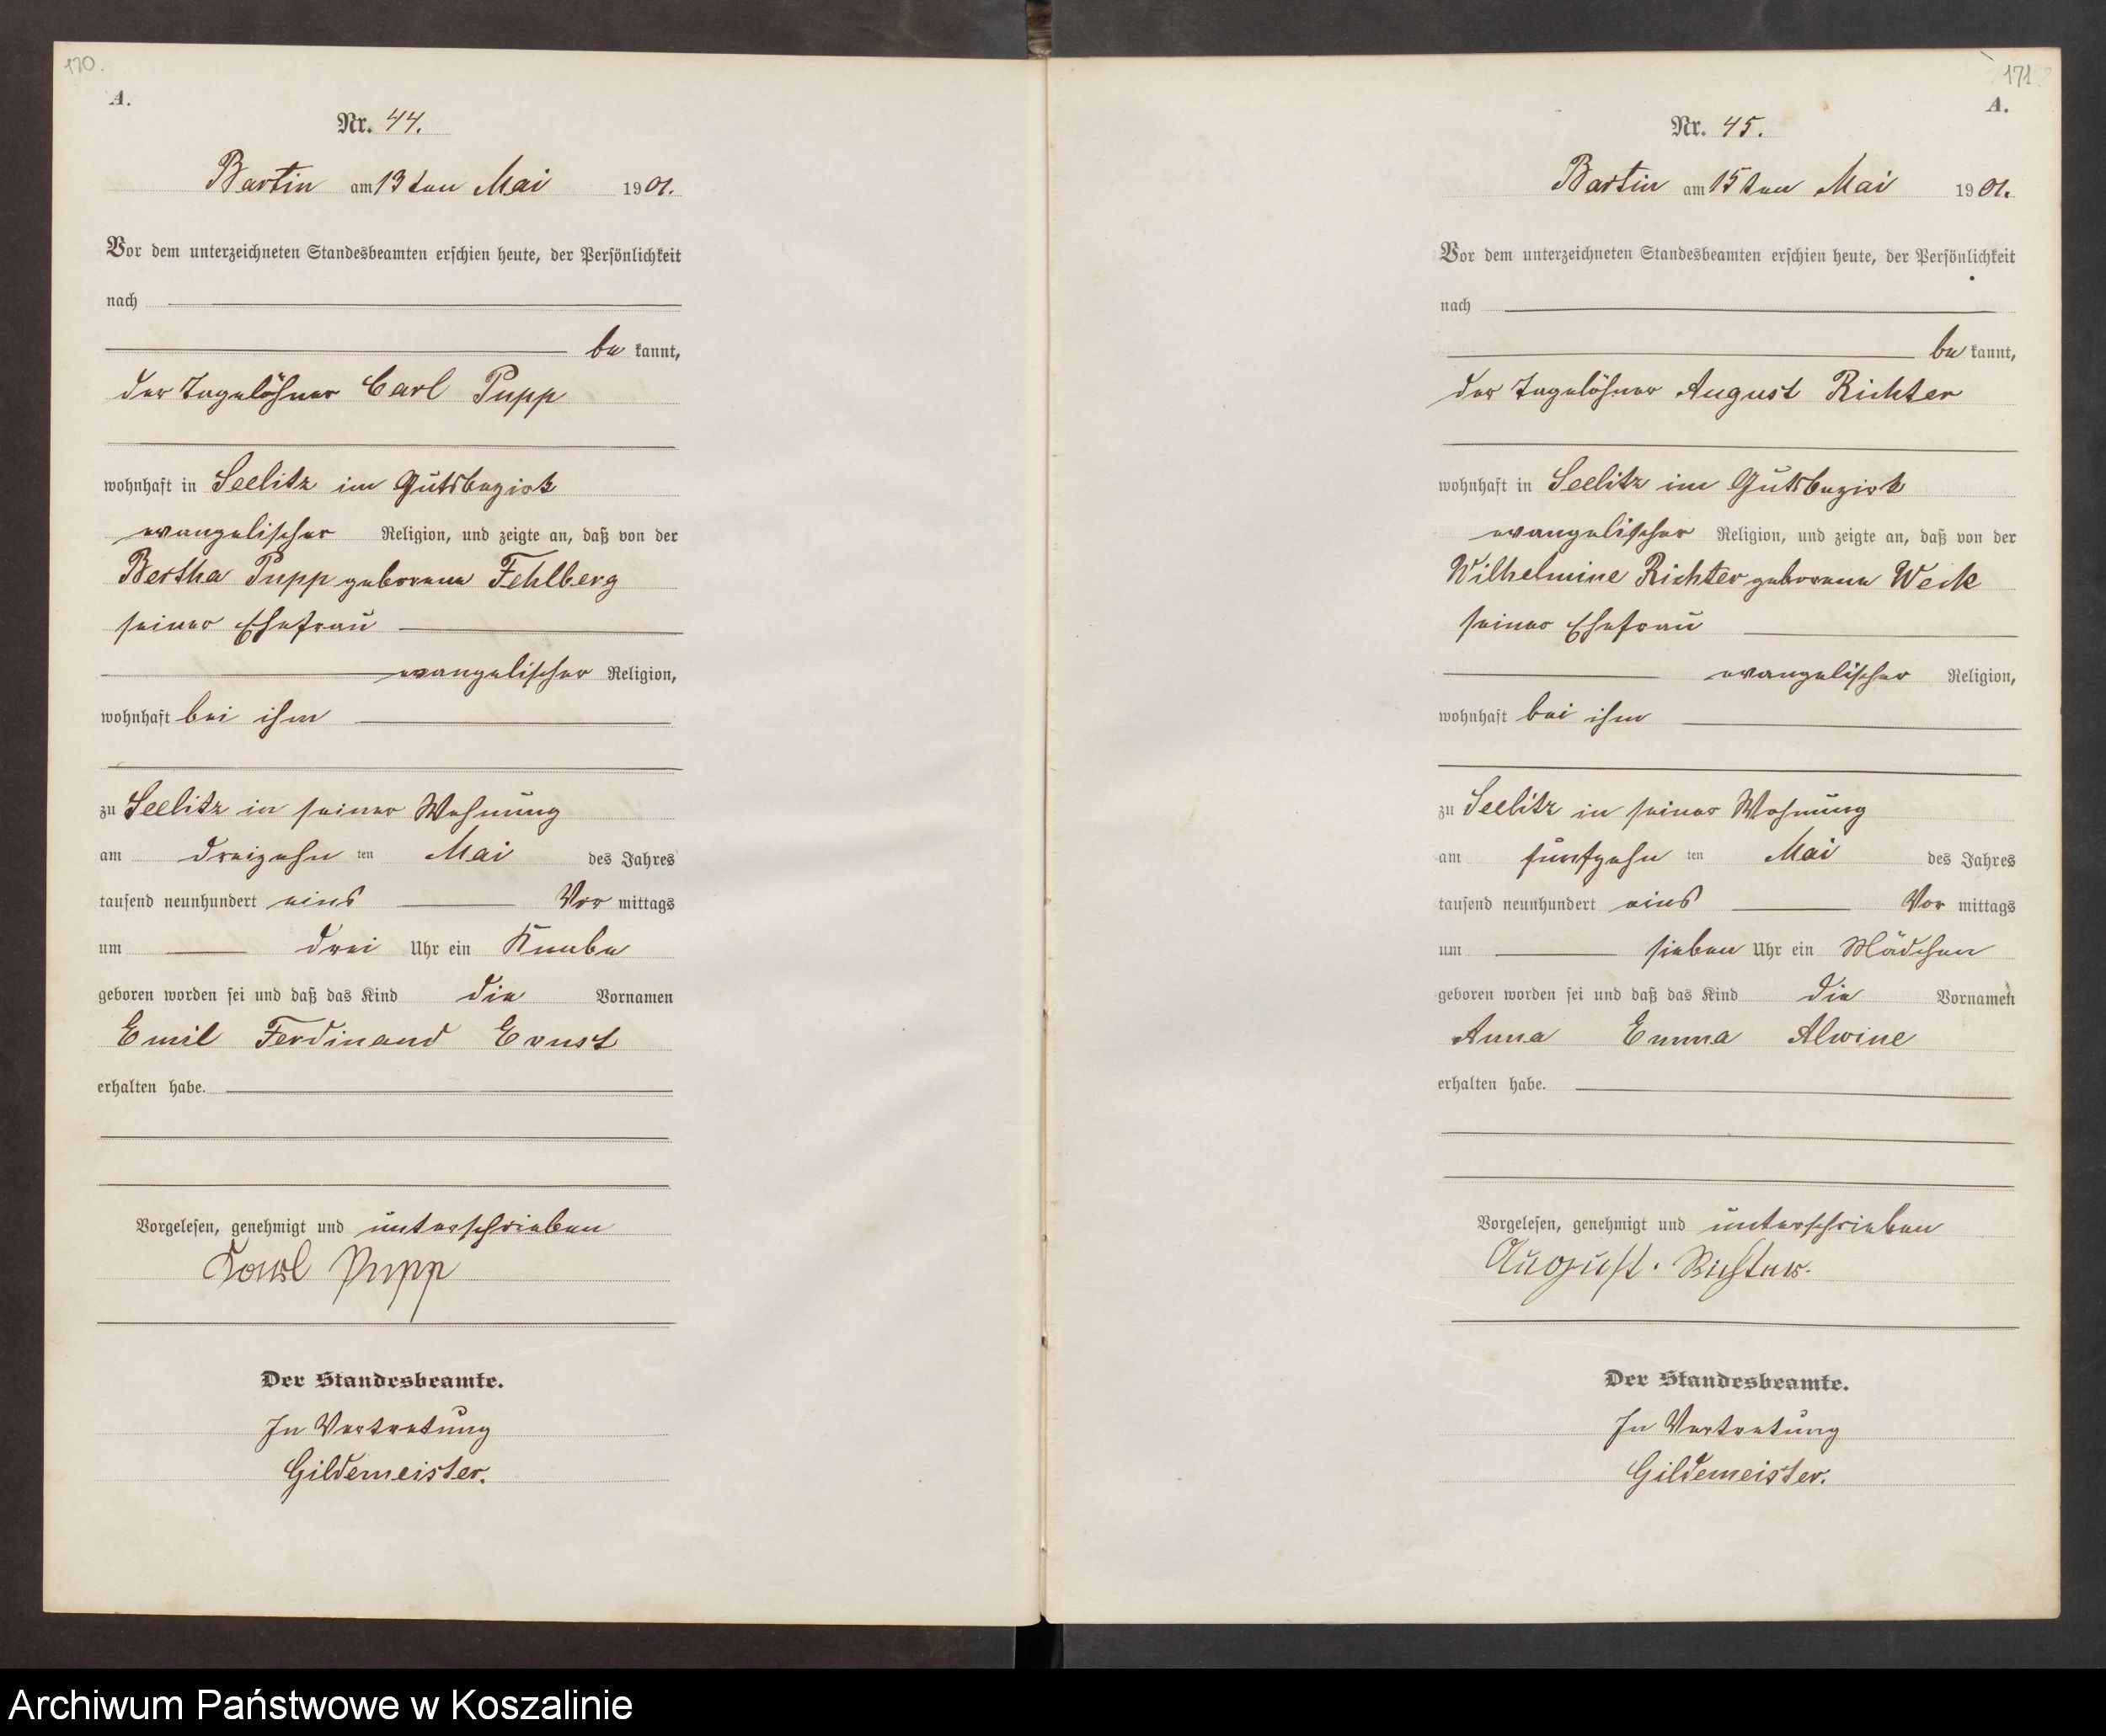 170.
A.
Nr. 44.
Bartin am 13ten Mai 1901.
Vor dem unterzeichneten Standesbeamten erschien heute, der Persönlichkeit
nach
be kannt,
der Tagelöhner Carl Pupp
wohnhaft in Seelitz im Gutsbezirk
evangelischer Religion, und zeigte an, daß von der
Bertha Pupp geborene Fehlberg
seiner Ehefrau
evangelischer Religion,
wohnhaft bei ihm
zu Seelitz in seiner Wohnung
am dreizehn ten Mai des Jahres
tausend neunhundert eins Vor mittags
um drei Uhr ein Knabe
geboren worden sei und daß das Kind die Vornamen
Emil Ferdinand Ernst
erhalten habe.
Vorgelesen, genehmigt und unterschrieben
Karl Pupp
Der Standesbeamte.
In Vertretung
Gildemeister.
171
A.
Nr. 45.
Bartin am 15ten Mai 1901.
Vor dem unterzeichneten Standesbeamten erschien heute, der Persönlichkeit
nach
be kannt,
der Tagelöhner August Richter
wohnhaft in Seelitz im Gutsbezirk
evangelischer Religion, und zeigte an, daß von der
Wilhelmine Richter geborene Weck
seiner Ehefrau
evangelischer Religion,
wohnhaft bei ihm
zu Seelitz in seiner Wohnung
am fünfzehn ten Mai des Jahres
tausend neunhundert eins Vor mittags
um sieben Uhr ein Mädchen
geboren worden sei und daß das Kind die Vornamen
Anna Emma Alwine
erhalten habe.
Vorgelesen, genehmigt und unterschrieben
August. Richter.
Der Standesbeamte.
In Vertretung
Gildemeister.
Archiwum Państwowe w Koszalinie